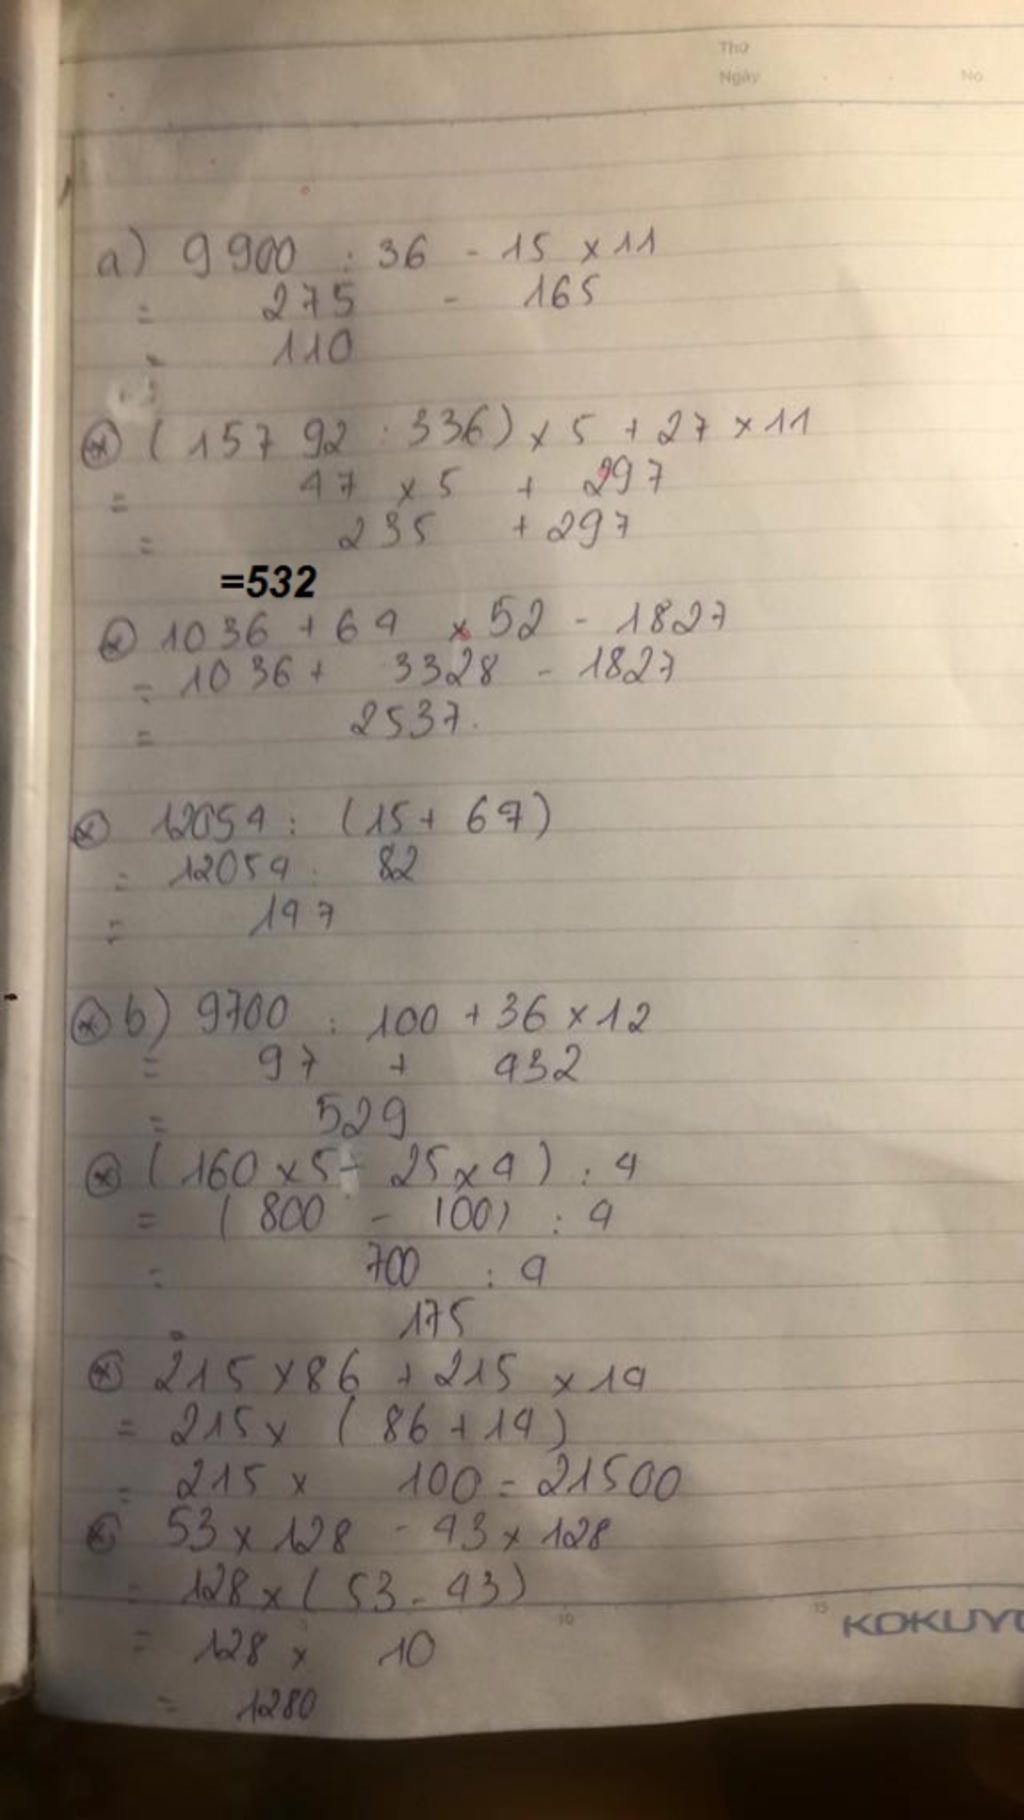 Thứ
Ngày No
a) 9900 : 36 - 15 x 11
= 275 - 165
= 110
(15792 : 336) x 5 + 27 x 11
= 47 x 5 + 297
= 235 + 297
=532
1036 + 64 x 52 - 1827
= 1036 + 3328 - 1827
= 2537.
12054 : (15 + 67)
= 12054 : 82
= 147
b) 9700 : 100 + 36 x 12
= 97 + 432
= 529
(160 x 5 - 25 x 4) : 4
= (800 - 100) : 4
= 700 : 4
175
215 x 86 + 215 x 14
= 215 x (86 + 14)
= 215 x 100 = 21500
53 x 128 - 43 x 128
= 128 x (53 - 43)
10 15 KOKUYO
= 128 x 10
= 1280